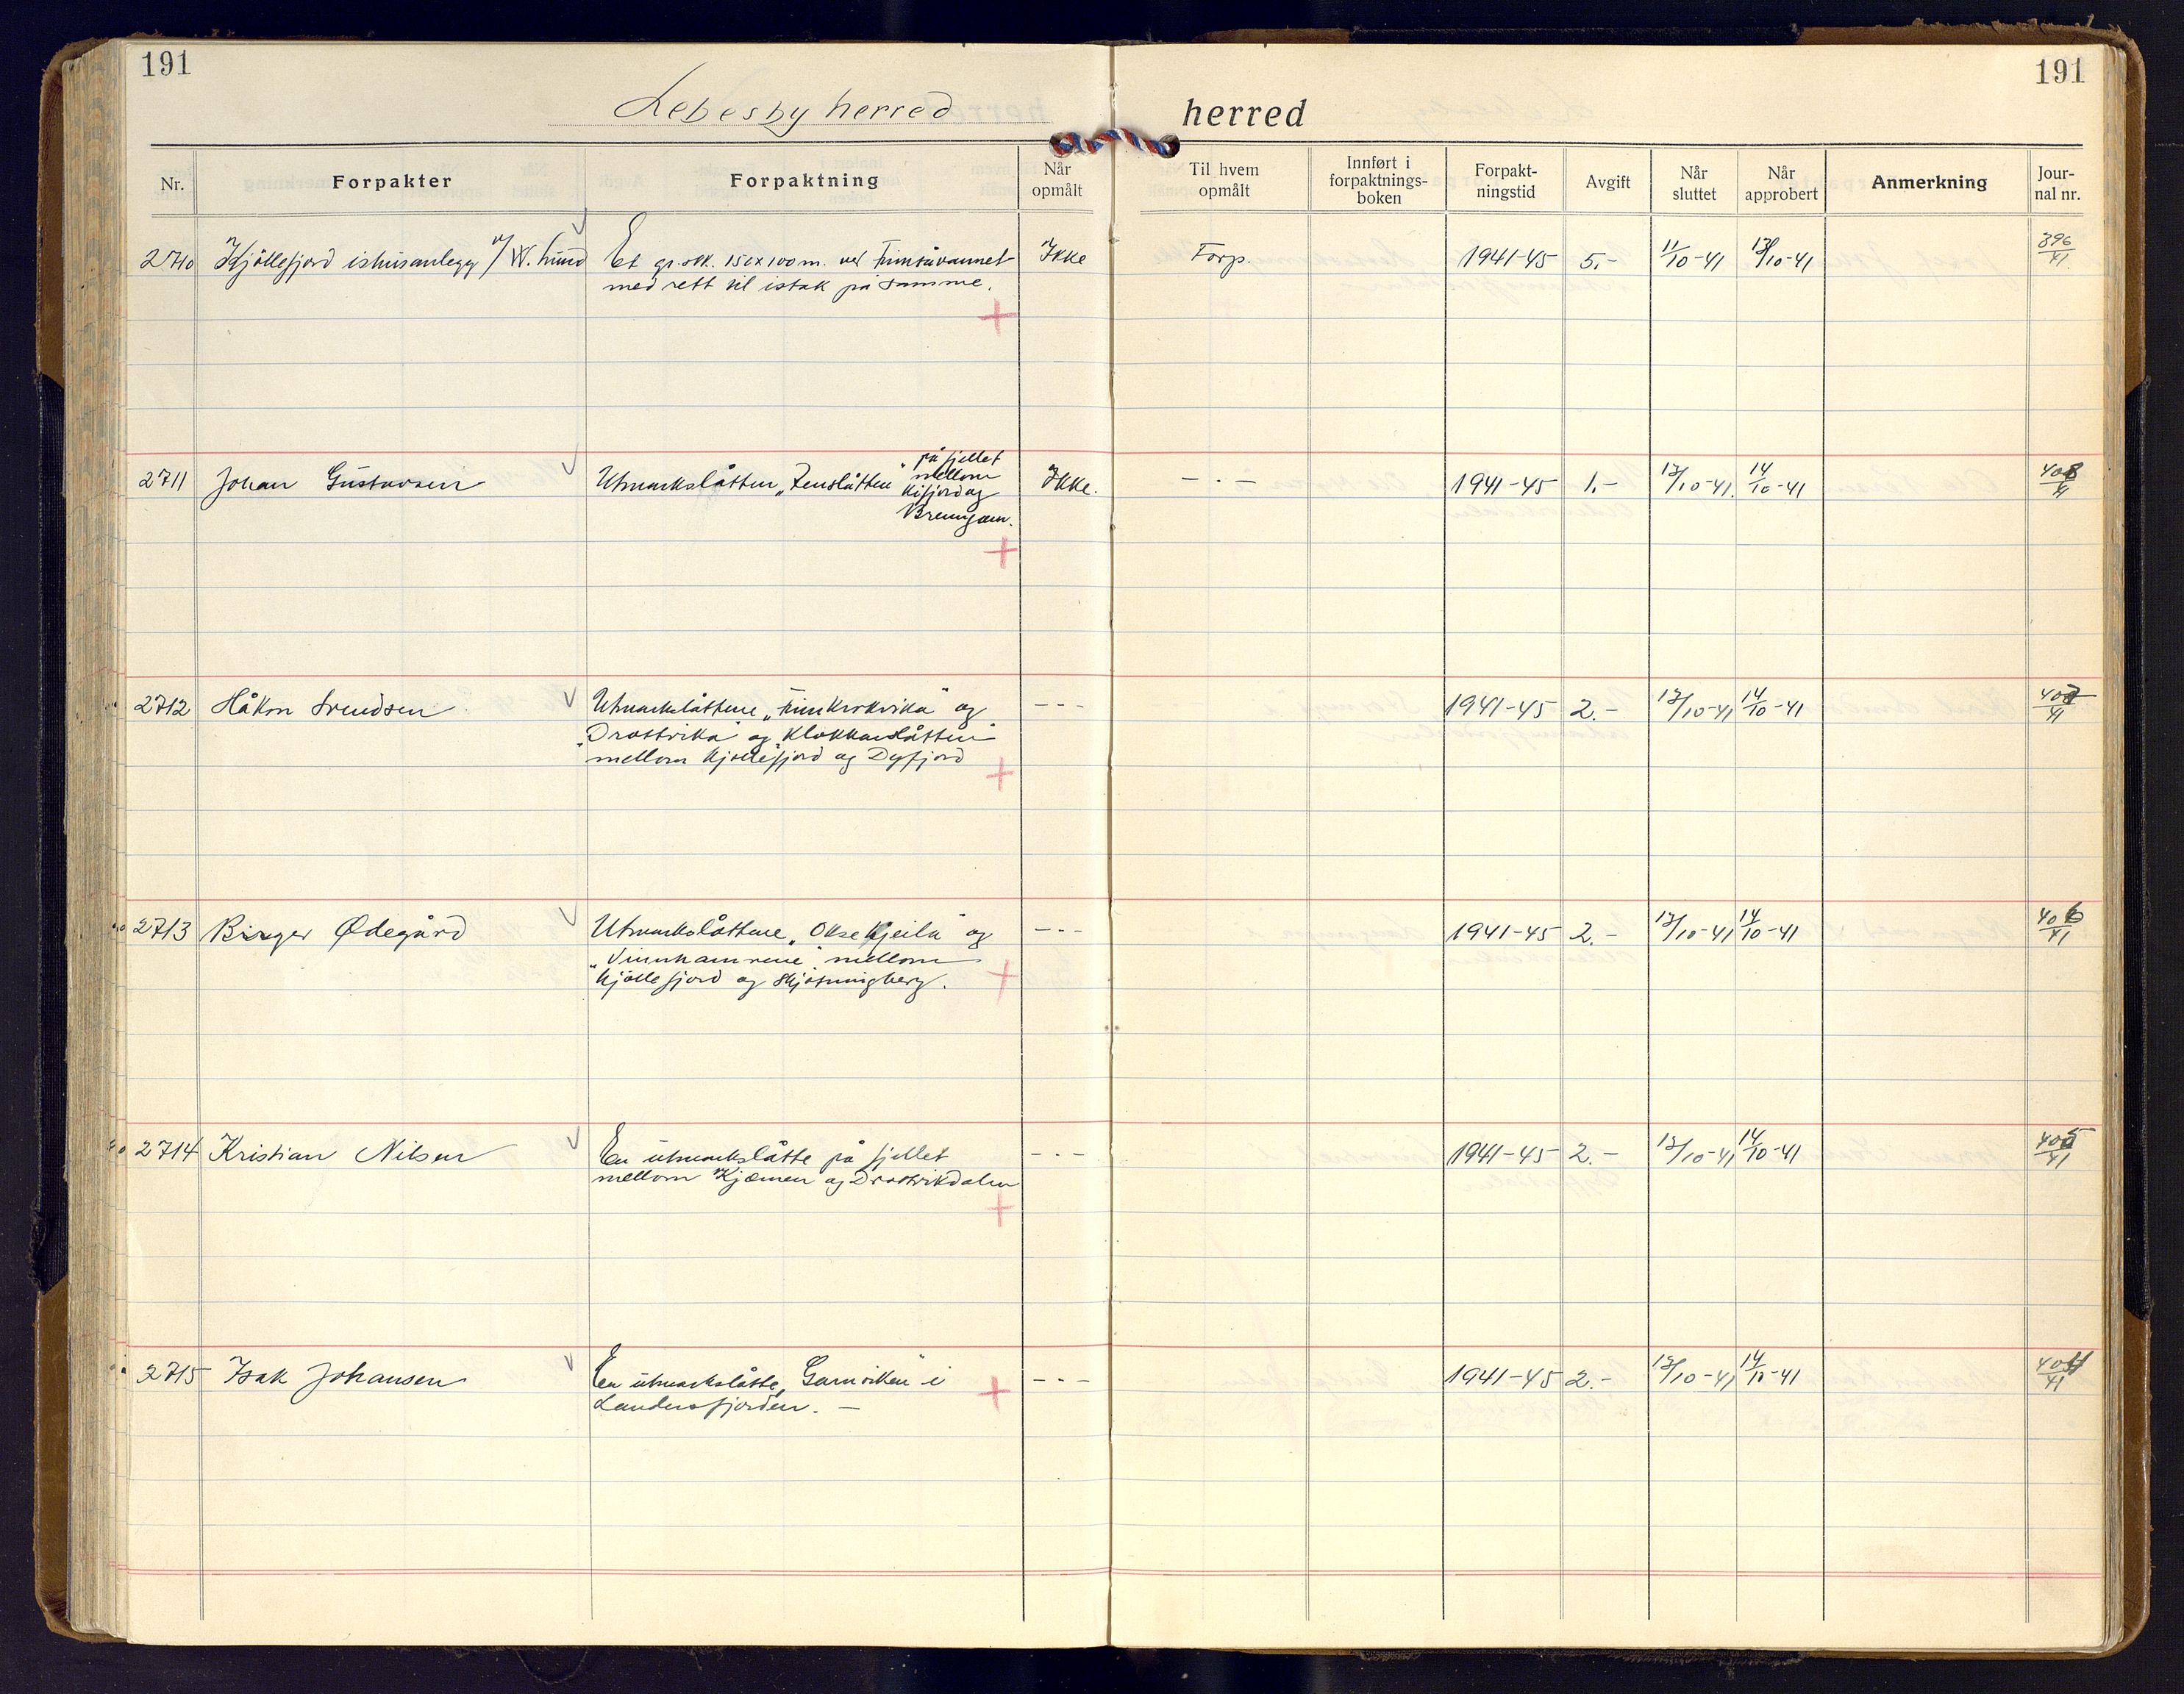 191
191
Lebesby herred
herred
Nr.
Forpakter
Forpaktning
Når opmålt
Til hvem opmålt
Innført i forpaktnings- boken
Forpakt- ningstid
Avgift
Når sluttet
Når approbert
Anmerkning
Jour- nal nr.
2710 Kjøllefjord ishusanlegg v/ W. Lund Et gr.stk. 150x100 m. ved Finnsåvannet Ikke Forp. 1941-45 5.- 11/10-41 13/10-41 396/41
med rett til istak på samme.
på fjellet
2711 Johan Gustavsen Utmarkslåtten „Tenslåtten" mellom Ikke. - . - 1941-45 1.- 13/10-41. 14/10-41 408/41
Kifjord og
Brenngam.
2712 Håkon Svendsen Utmarkslåttene „Finnkrokvika" og - - - 1941-45 2.- 13/10-41 14/10-41 407/41
„Drottvika" og Klokkarslåtten
mellom Kjøllefjord og Dyfjord
2713 Birger Ødegård Utmarkslåttene „Oksekjeila" og - - - 1941-45 2.- 13/10-41 14/10-41 406/41
„Vinnhamrene" mellom
Kjøllefjord og Skjøtningberg.
2714 Kristian Nilsen En utmarkslåtte på fjellet - - - 1941-45 2.- 13/10-41 14/10-41 405/41
mellom Kjæmen og Drottvikdalen
2715 Isak Johansen En utmarkslåtte „Garnviken" i - - - 1941-45 2.- 13/10-41 14/10-41 404/41
Landersfjorden. -